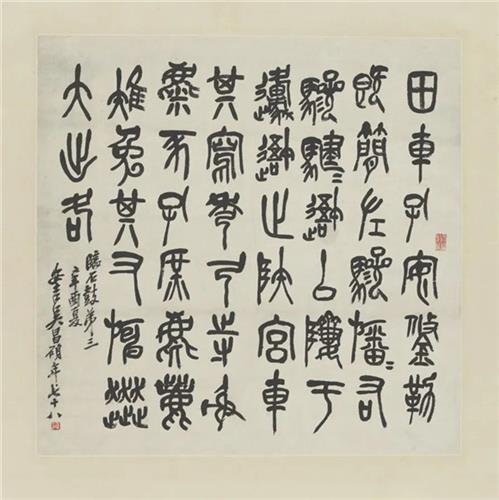 田車孔安鋚勒
既簡左驂旛=右
驂騝=䢩以隮于
邍䢩止陝宮車
其寫秀弓寺射
麋豕孔庶麀鹿
雉兔其又奔
大出各
臨石鼓第三
辛酉夏
安吉吳昌碩年七十八